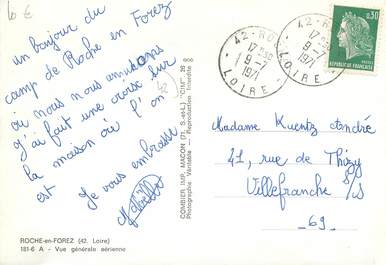 10 €
un bonjour du
camp de Roche en Forez
où nous nous amusons
j'ai fait une croix sur
la maison où l'on
est
Je vous embrasse
42
ROCHE-en-FOREZ (42. Loire)
181-6 A - Vue générale aérienne
COMBIER IMP. MACON (71, S.-et-L.) "CIM"
Photographie Véritable - Reproduction Interdite
42-RO
17H30
9-7
1971
LOIRE
42-RO
17H30
9-7
1971
LOIRE
0,30
POSTES
REPUBLIQUE FRANÇAISE
Madame Kuentz André
41, rue de Thizy
Villefranche s/s
-69-